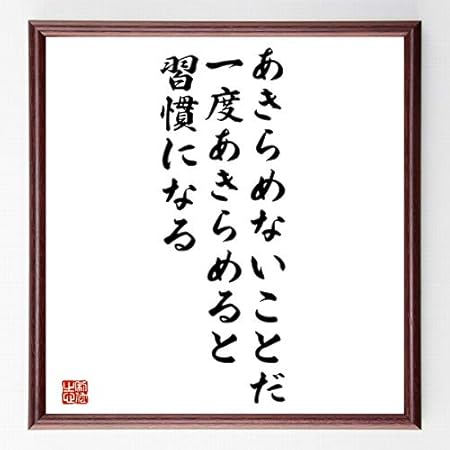 あきらめないことだ
一度あきらめると
習慣になる